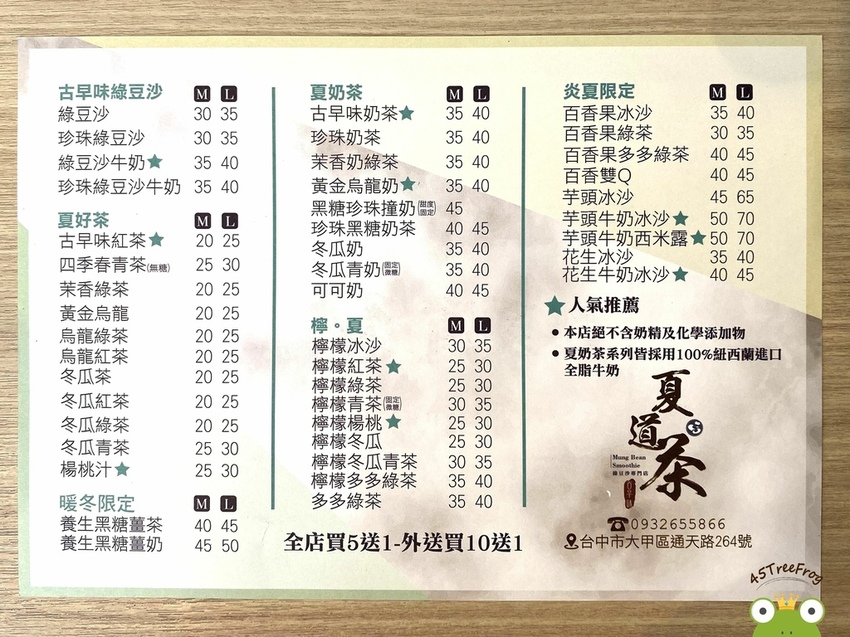 古早味綠豆沙 M L
綠豆沙 30 35
珍珠綠豆沙 30 35
綠豆沙牛奶★ 35 40
珍珠綠豆沙牛奶 35 40
夏好茶 M L
古早味紅茶★ 20 25
四季春青茶(無糖) 25 30
茉香綠茶 20 25
黃金烏龍 20 25
烏龍綠茶 20 25
烏龍紅茶 20 25
冬瓜茶 20 25
冬瓜紅茶 20 25
冬瓜綠茶 20 25
冬瓜青茶 25 30
楊桃汁★ 25 30
暖冬限定 M L
養生黑糖薑茶 40 45
養生黑糖薑奶 45 50
夏奶茶 M L
古早味奶茶★ 35 40
珍珠奶茶 35 40
茉香奶綠茶 35 40
黃金烏龍奶★ 35 40
黑糖珍珠撞奶(甜度固定) 45
珍珠黑糖奶茶 40 45
冬瓜奶 35 40
冬瓜青奶(固定微糖) 35 40
可可奶 40 45
檸。夏 M L
檸檬冰沙 30 35
檸檬紅茶★ 25 30
檸檬綠茶 25 30
檸檬青茶(固定微糖) 30 35
檸檬楊桃★ 25 30
檸檬冬瓜 25 30
檸檬冬瓜青茶 30 35
檸檬多多綠茶 35 40
多多綠茶 35 40
全店買5送1-外送買10送1
炎夏限定 M L
百香果冰沙 35 40
百香果綠茶 30 35
百香果多多綠茶 40 45
百香雙Q 40 45
芋頭冰沙 45 65
芋頭牛奶冰沙★ 50 70
芋頭牛奶西米露★ 50 70
花生冰沙 35 40
花生牛奶冰沙★ 40 45
★人氣推薦
●本店絕不含奶精及化學添加物
●夏奶茶系列皆採用100%紐西蘭進口
全脂牛奶
夏道茶
Mung Bean
Smoothie
綠豆沙專門店
☎0932655866
台中市大甲區通天路264號
45TreeFrog